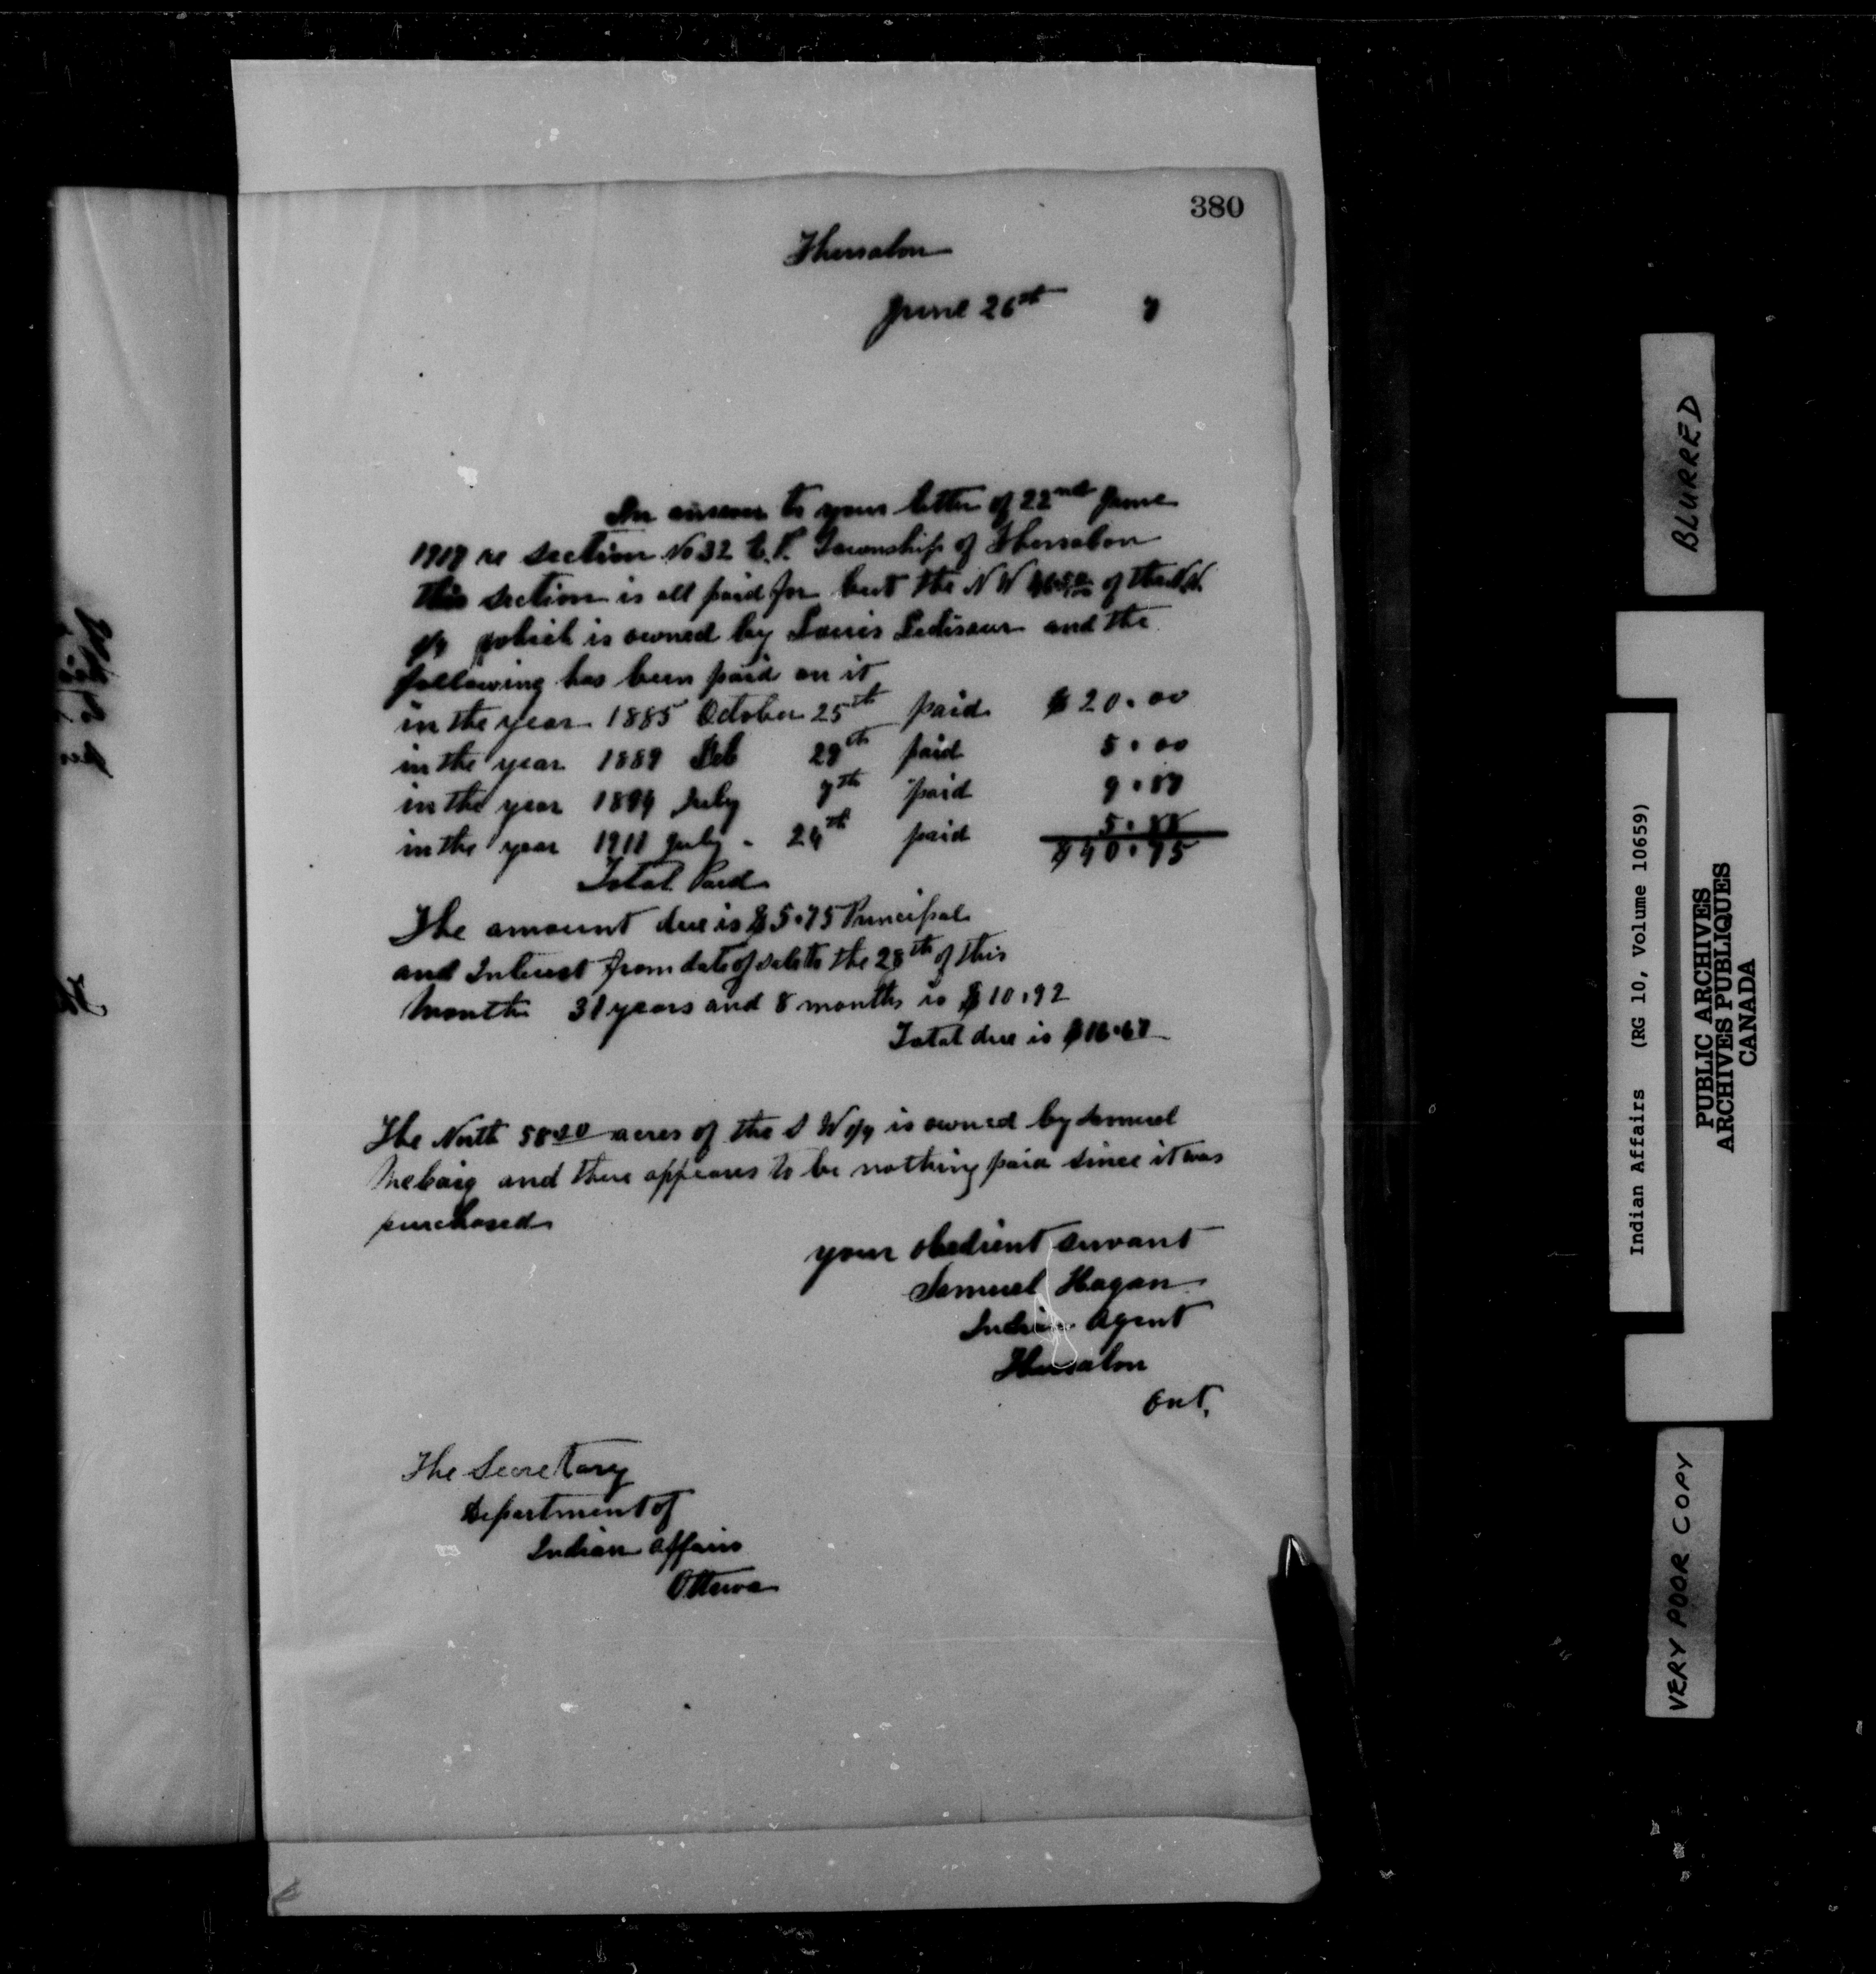 380
Thessalon
June 26th 7
In answer to your letter of 22nd June
1917 re section No 32 C.P. Township of Thessalon
this section is all paid for but the N W of the N.W.
1/4 which is owned by Louis and the
following has been paid on it
in the year 1885 October 25th paid $20.00
in the year 1889 Feb 28th paid 5.00
in the year July 7th paid 9.87
in the year 1911 July 24th paid 5.88
Total Paid $40.75
The amount due is $5.75 Principal
and Interest from date of sale to the 28th of this
month 31 years and 8 months is $10.92
Total due is $16.67
The North 58 acres of the S W 1/4 is owned by Samuel
and there appears to be nothing paid since it was
purchased
your obedient servant
Samuel Hagan
Indian Agent
Thessalon
Ont.
The Secretary
Department of
Indian Affairs
Ottawa
BLURRED
Indian Affairs (RG 10, Volume 10659)
PUBLIC ARCHIVES
ARCHIVES PUBLIQUES
CANADA
VERY POOR COPY